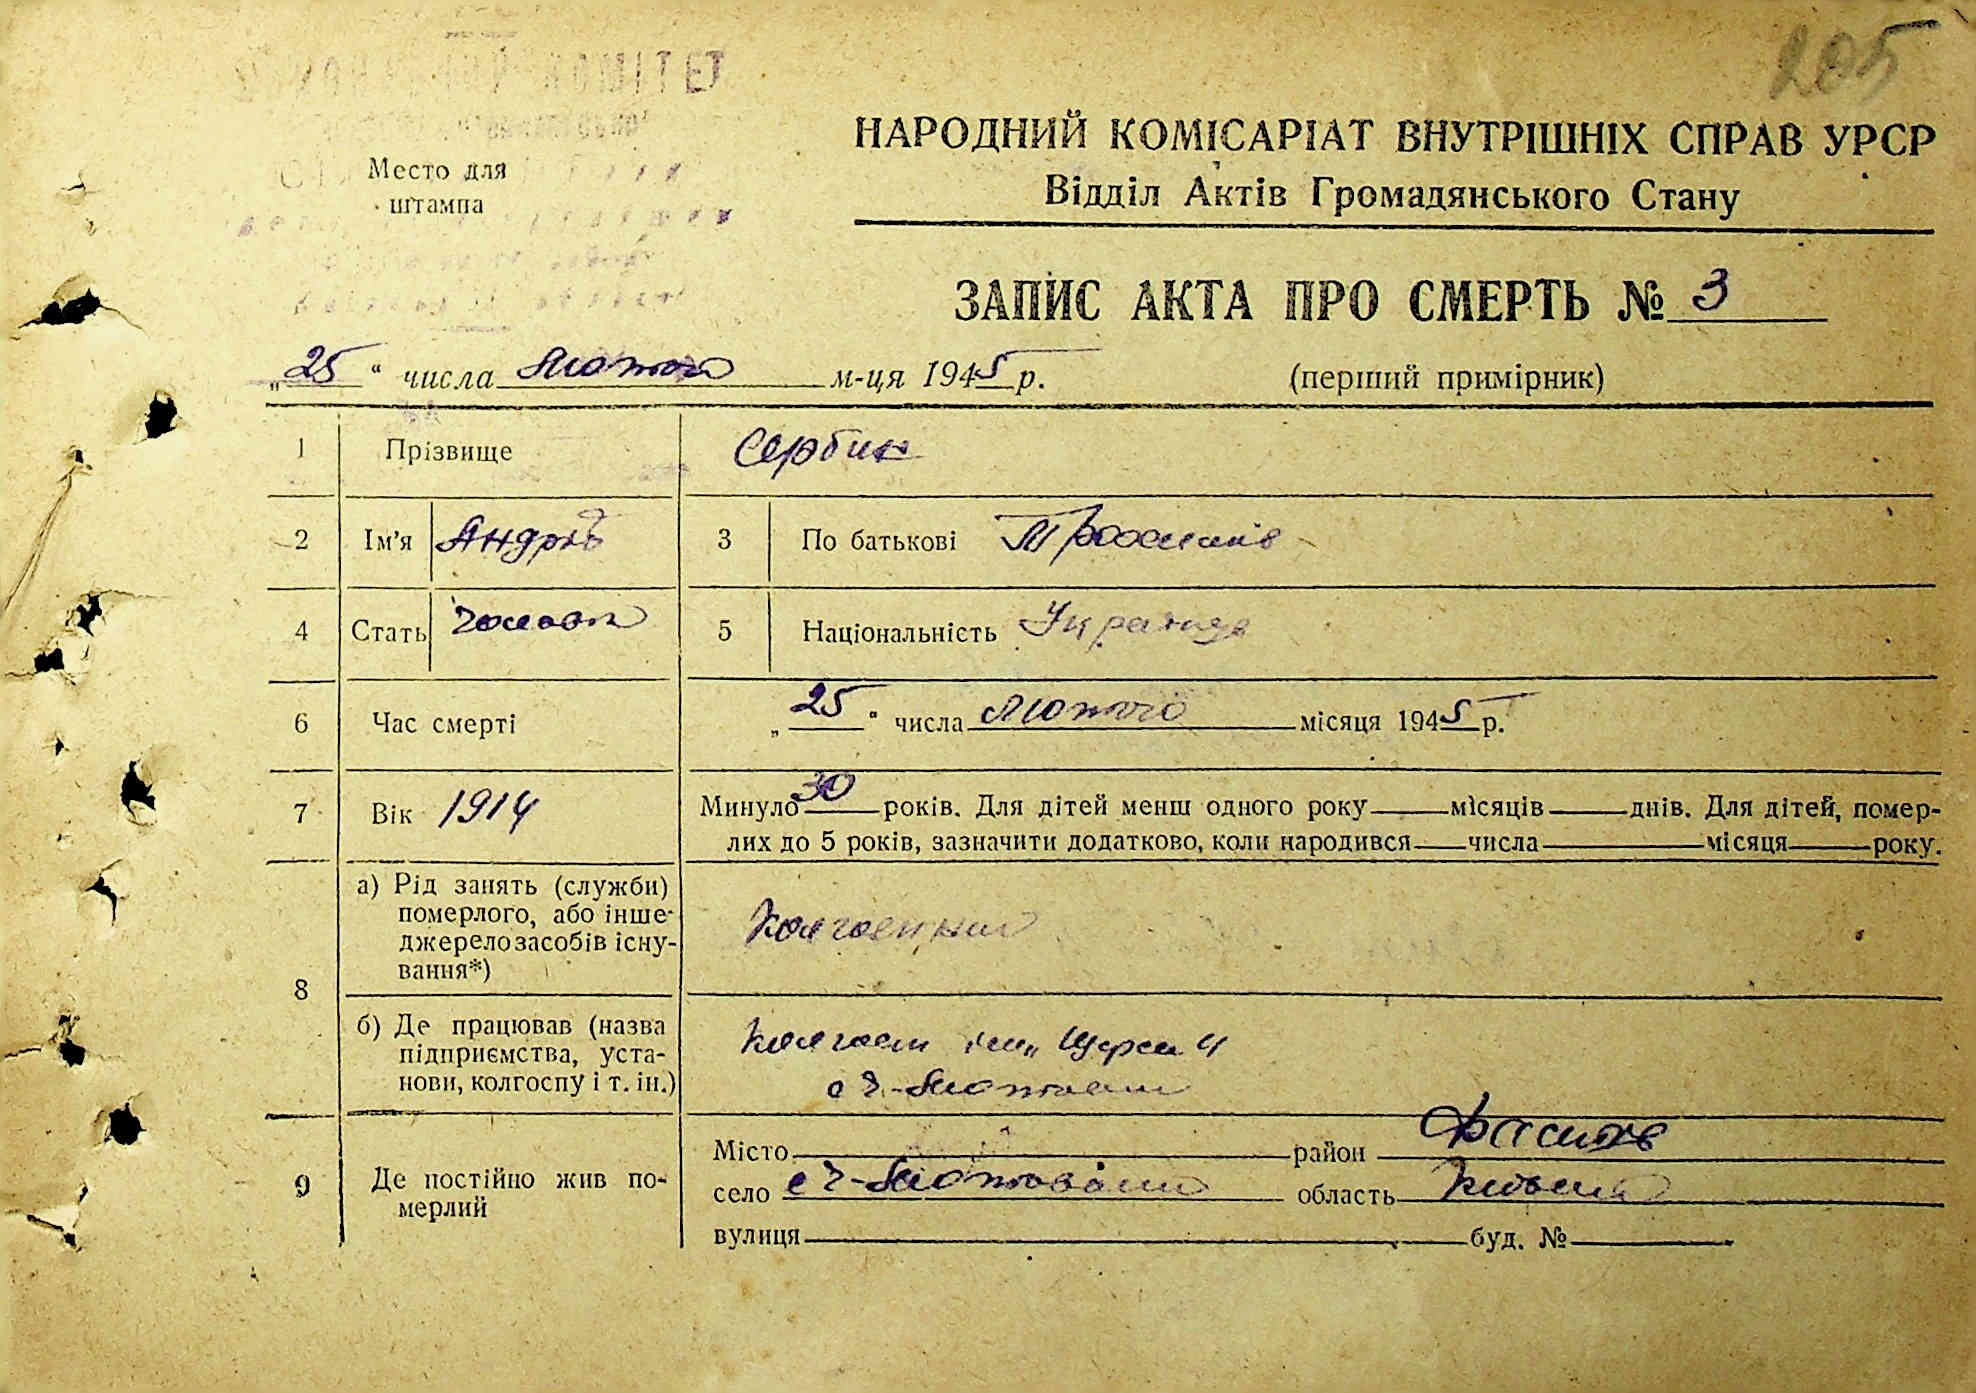 205
НАРОДНИЙ КОМІСАРІАТ ВНУТРІШНІХ СПРАВ УРСР
Відділ Актів Громадянського Стану
Место для
штампа
ЗАПИС АКТА ПРО СМЕРТЬ № 3
„25“ числа Лютого м-ця 1945 р.
(перший примірник)
1 Прізвище Сербин
2 Ім’я Андрій 3 По батькові
4 Стать Чоловіч 5 Національність Українец
6 Час смерті „25“ числа Лютого місяця 1945 р.
7 Вік 1914 Минуло 30 років. Для дітей менш одного року місяців днів. Для дітей, помер-
лих до 5 років, зазначити додатково, коли народився числа місяця року.
8 а) Рід занять (служби)
померлого, або інше
джерело засобів існу-
вання*)
Колгоспник
б) Де працював (назва
підприємства, уста-
нови, колгоспу і т. ін.)
Колгосп ім. Щорса
9 Де постійно жив по-
мерлий
Місто район Фастів
село с область Київська
вулиця буд. №